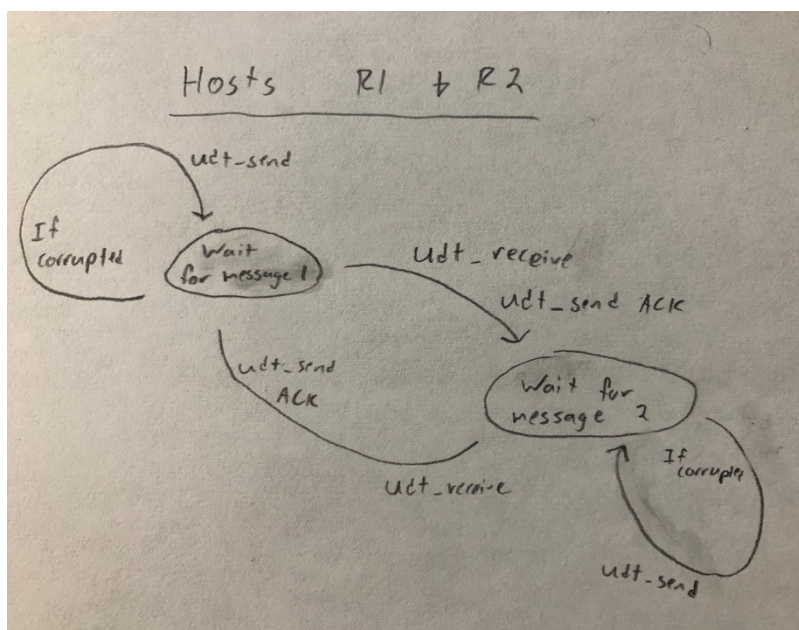 Hosts R1 + R2
udt_send
If
corrupted
Wait
for message 1
udt_receive
udt_send ACK
udt_send
ACK
Wait for
message 2
If
corrupted
udt_receive
udt_send